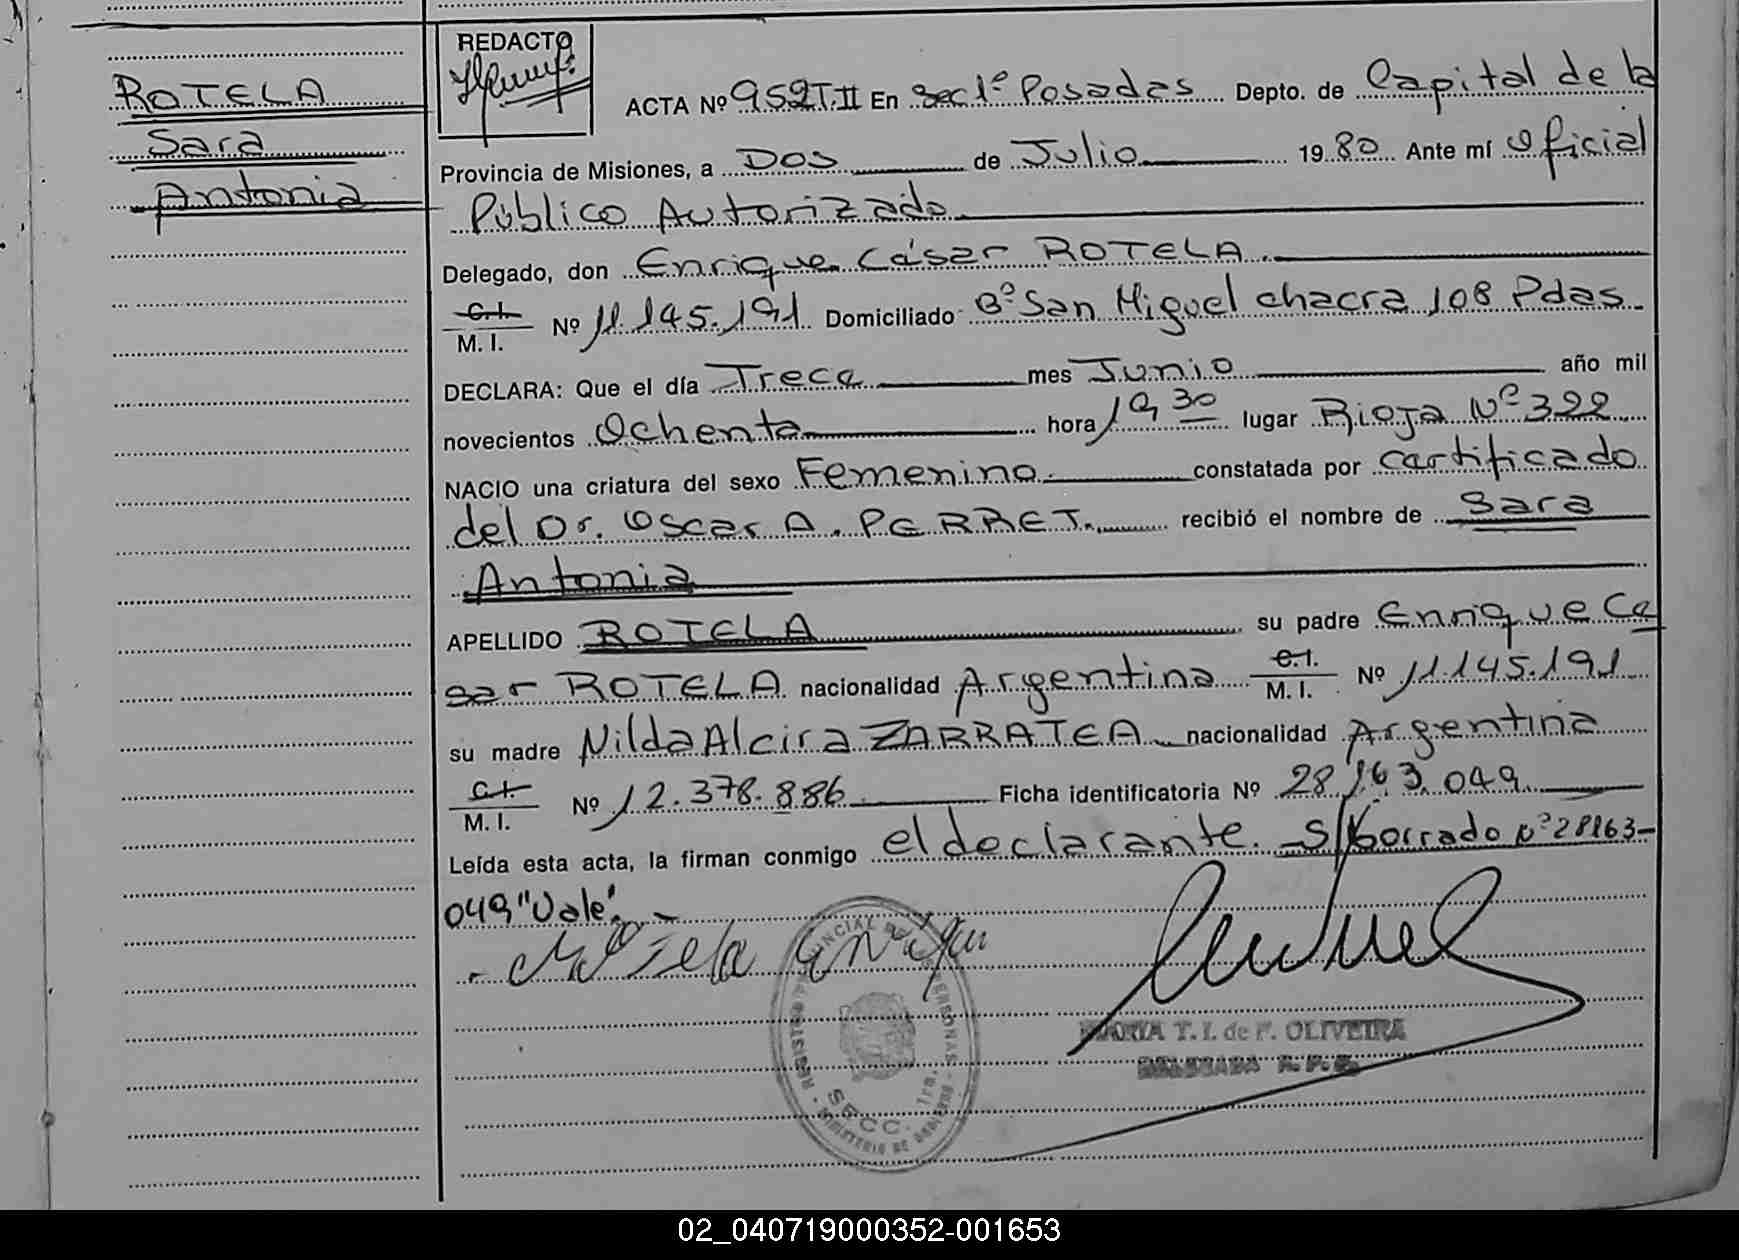 ROTELA
Sara
Antonia
REDACTO
ACTA Nº 952 T. II En Sec 1º Posadas Depto. de Capital de la
Provincia de Misiones, a Dos de Julio 1980 Ante mí Oficial
Público Autorizado
Delegado, don Enrique César ROTELA.
C.I.
M. I. Nº 11.145.191 Domiciliado Bº San Miguel chacra 108 Pdas.
DECLARA: Que el día Trece mes Junio año mil
novecientos Ochenta hora 19,30 lugar Rioja Nº 322
NACIO una criatura del sexo Femenino. constatada por certificado
del Dr. Oscar A. PERRET. recibió el nombre de Sara
Antonia
APELLIDO ROTELA su padre Enrique Ce
sar ROTELA nacionalidad Argentina C.I. M. I. Nº 11.145.191
su madre Nilda Alcira ZARRATEA nacionalidad Argentina
C.I.
M. I. Nº 12.378.886 Ficha identificatoria Nº 28.163.049
Leída esta acta, la firman conmigo el declarante. S/borrado Nº 28163-
049 "Vale".
Rotela Enrique
MARIA T. I. de F. OLIVEIRA
DELEGADA R. P. P.
REGISTRO PROVINCIAL DE LAS PERSONAS - MINISTERIO DE GOBIERNO
SECC. 1ra.
02_040719000352-001653